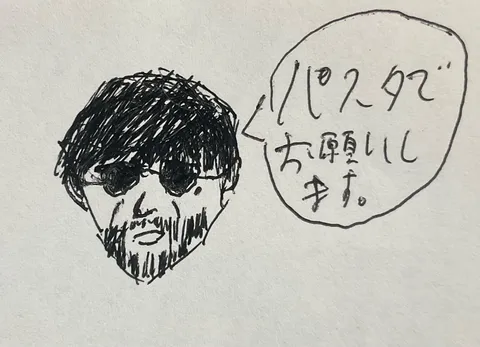 パスタで
お願いし
ます。